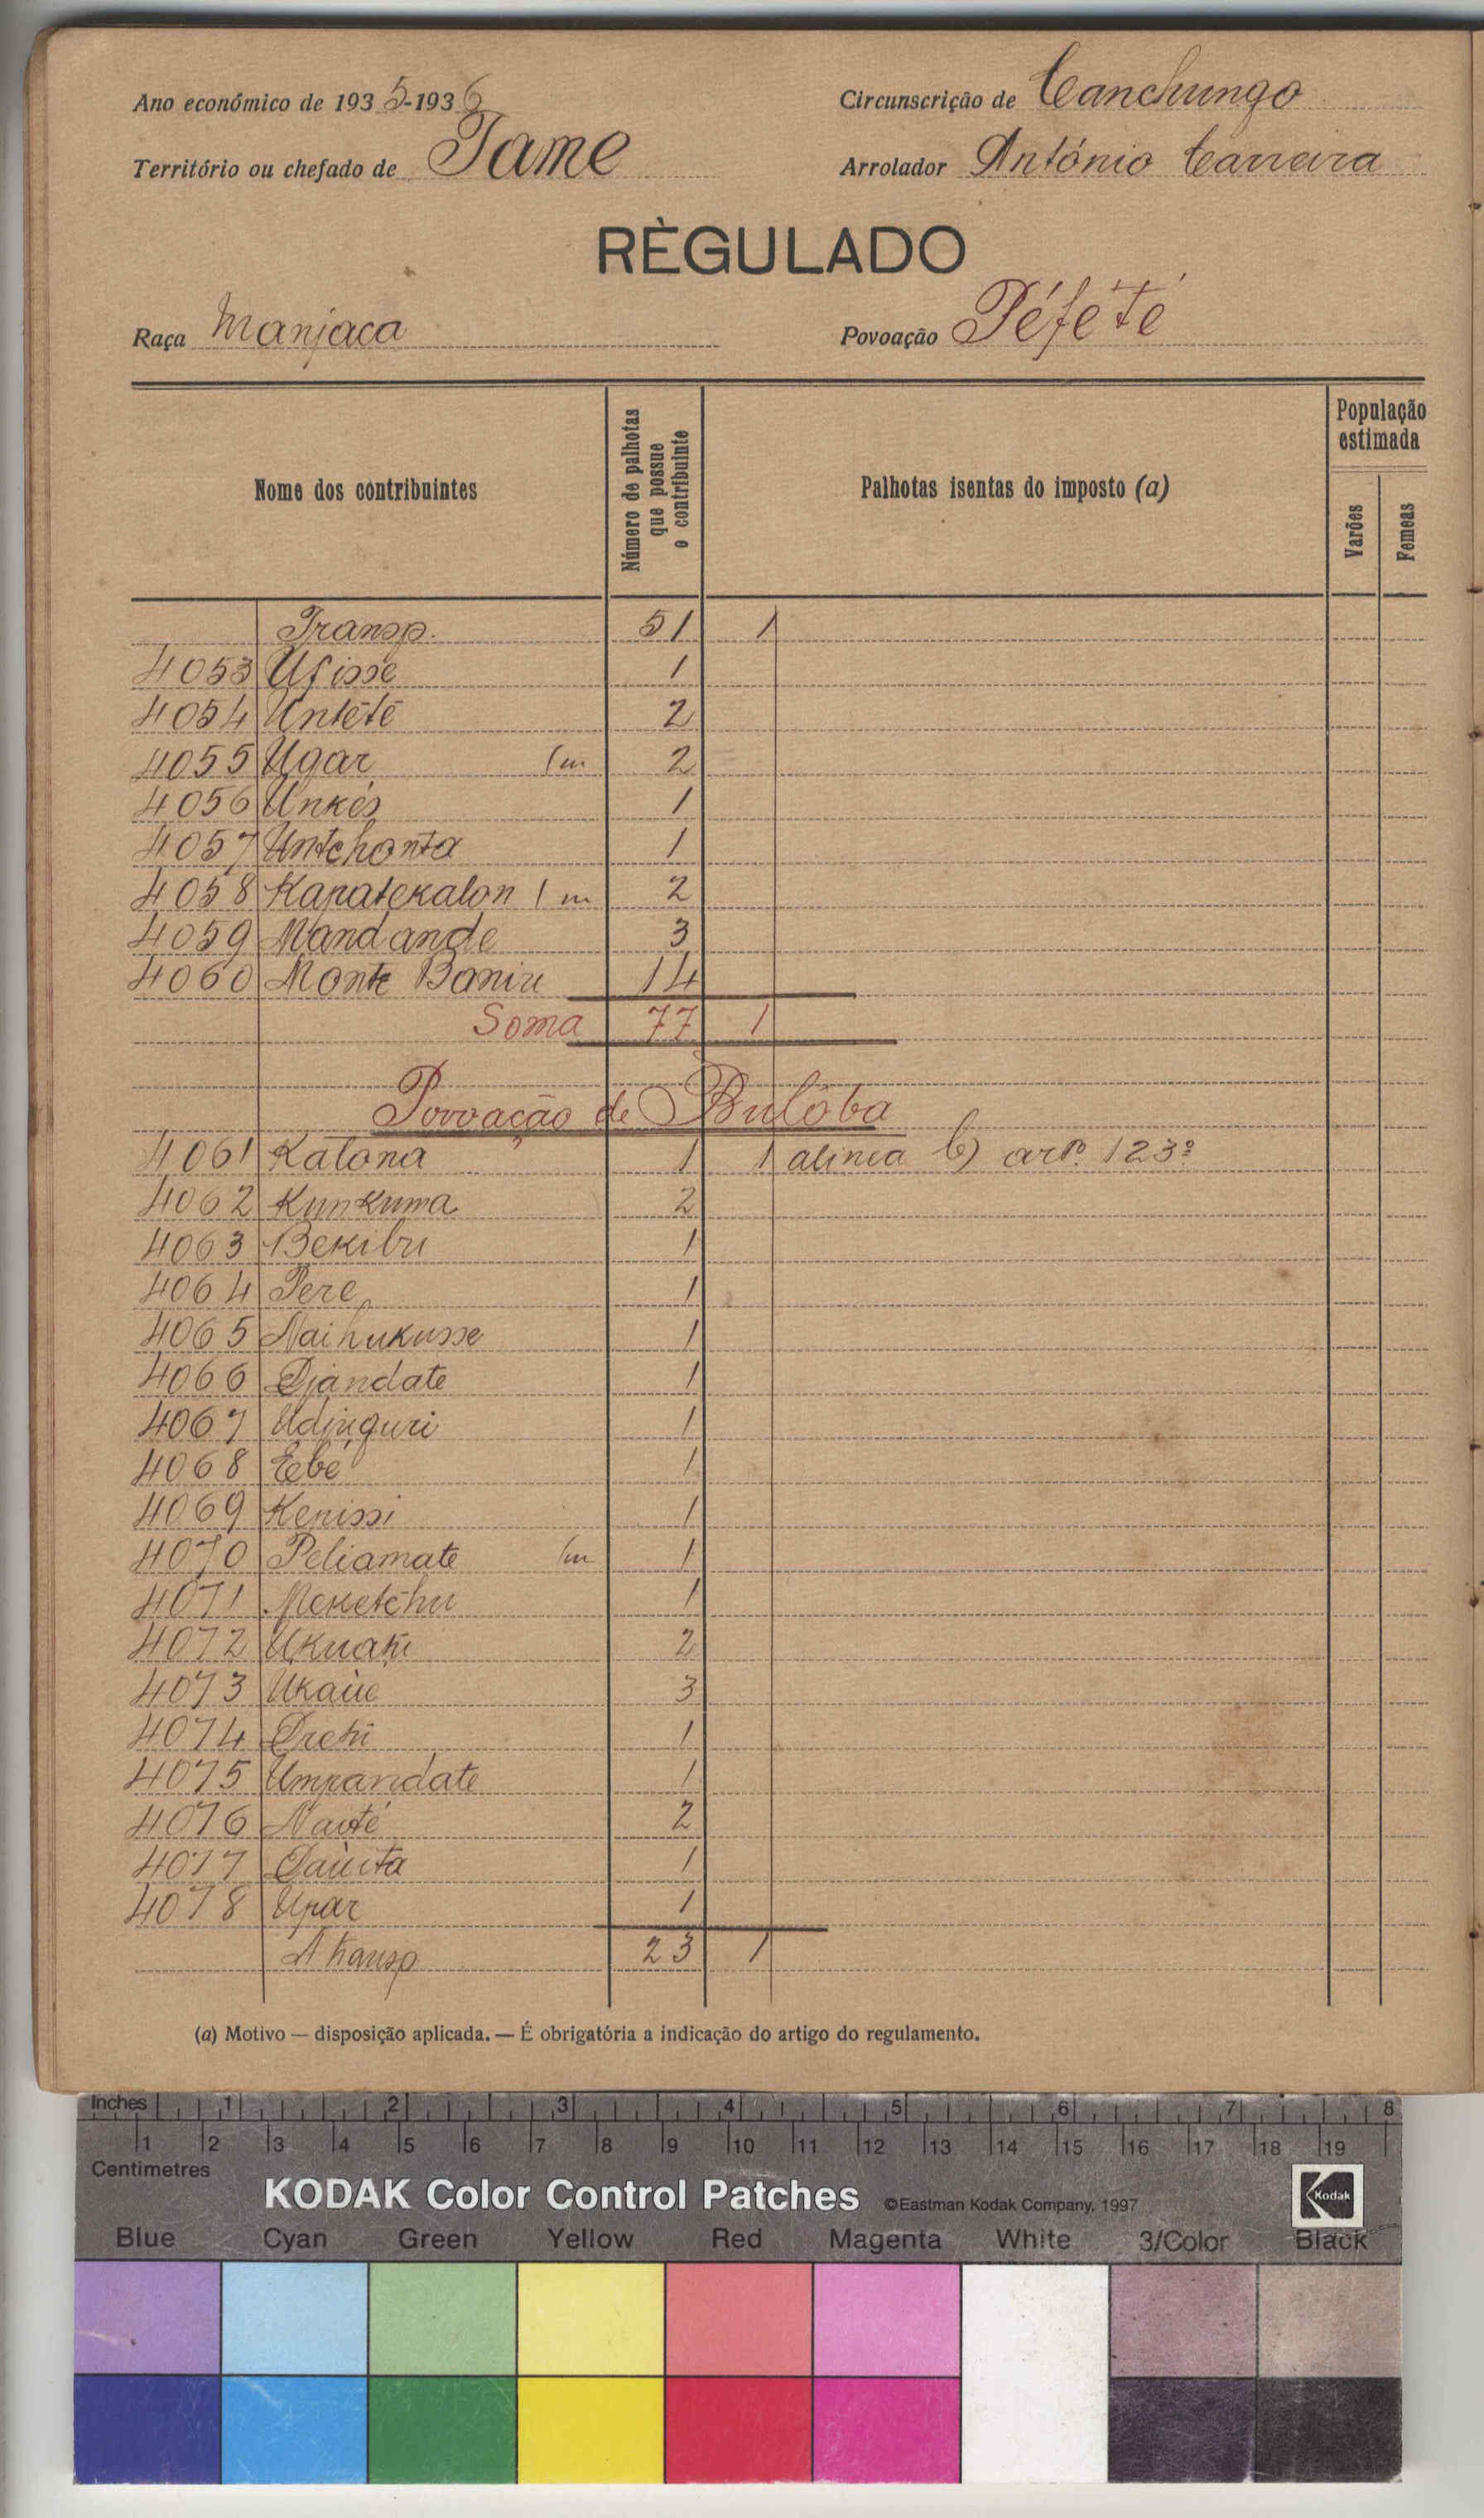 Ano económico de 1935-1936
Circunscrição de Canchungo
Território ou chefado de Tame
Arrolador António Carreira
RÈGULADO
Raça Manjaca
Povoação Péfété
Nome dos contribuintes
Número de palhotas que possue o contribuinte
Palhotas isentas do imposto (a)
População estimada
Varões
Femeas
Transp. 51 1
4053 Ufisse 1
4054 Untêtê 2
4055 Ugar 1m 2
4056 Unkés 1
4057 Untchonta 1
4058 Kapatekalon 1m 2
4059 Mandande 3
4060 Monte Baniu 14
Soma 77 1
Povoação de Bulôba
4061 Katona 1 1 alinea b) artº. 123º
4062 Kunkuma 2
4063 Bekibu 1
4064 Pere 1
4065 Naihukusse 1
4066 Djandate 1
4067 Udjinguri 1
4068 Bebé 1
4069 Kenissi 1
4070 Peliamate 1m 1
4071 Meketchu 1
4072 2
4073 Ukaüe 3
4074 1
4075 Umpandate 1
4076 Nauté 2
4077 1
4078 Upar 1
A transp 23 1
(a) Motivo — disposição aplicada. — É obrigatória a indicação do artigo do regulamento.
Inches 1 2 3 4 5 6 7 8
1 2 3 4 5 6 7 8 9 10 11 12 13 14 15 16 17 18 19
Centimetres
KODAK Color Control Patches ©Eastman Kodak Company, 1997 Kodak
Blue Cyan Green Yellow Red Magenta White 3/Color Black